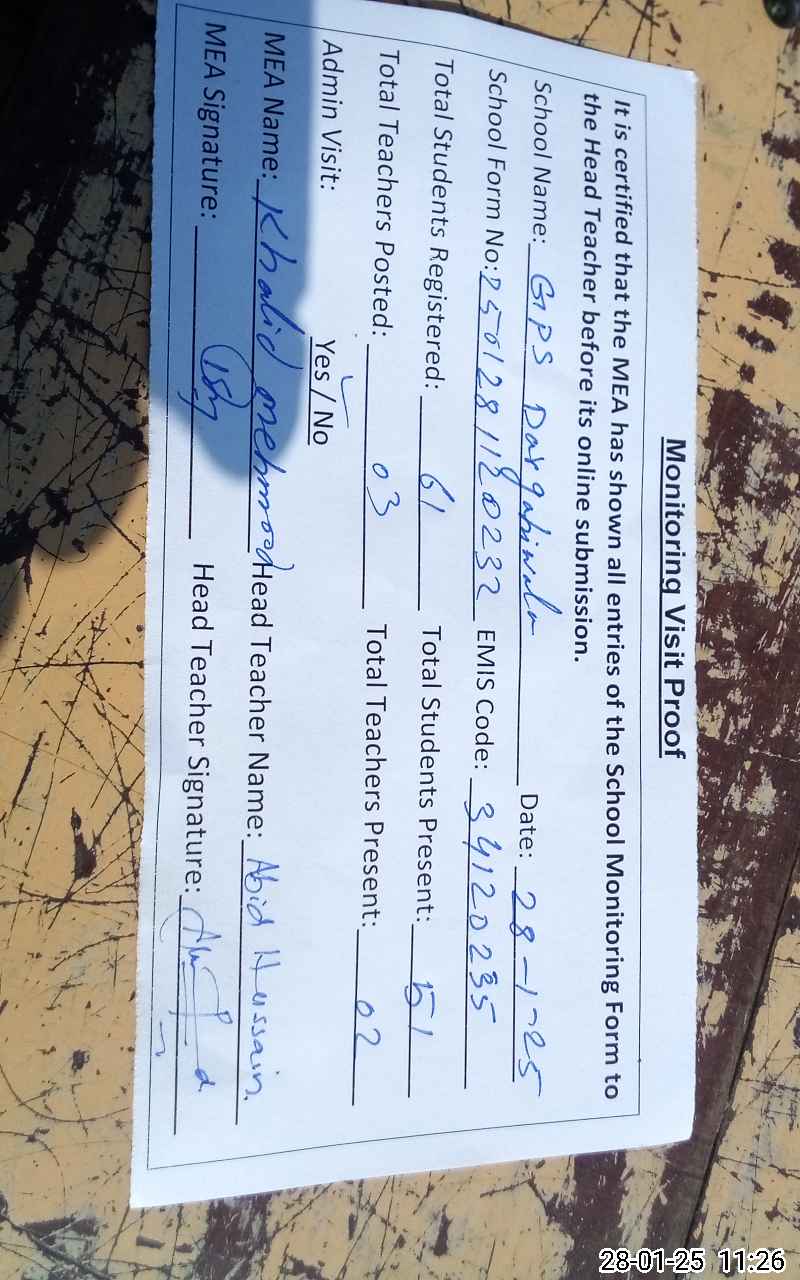 Monitoring Visit Proof
It is certified that the MEA has shown all entries of the School Monitoring Form to
the Head Teacher before its online submission.
School Name: GPS Dargahiwala Date: 28-1-25
School Form No: 250128112 0232 EMIS Code: 34120235
Total Students Registered: 61 Total Students Present: 51
Total Teachers Posted: 03 Total Teachers Present: 02
Admin Visit: Yes / No
MEA Name: Khalid mehmood Head Teacher Name: Abid Hussain.
MEA Signature: Head Teacher Signature:
28-01-25 11:26